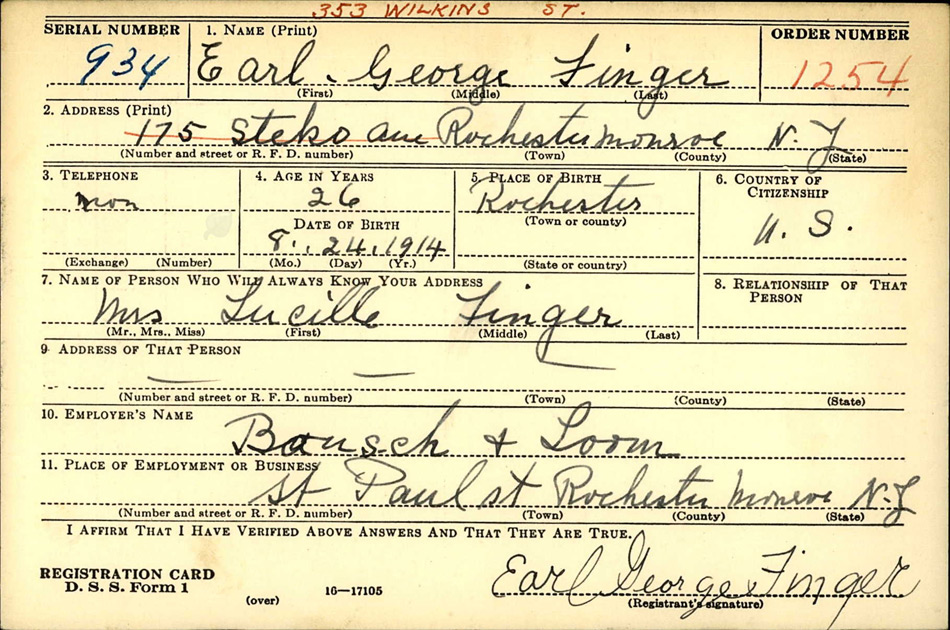 353 WILKINS ST.
SERIAL NUMBER 1. NAME (Print) ORDER NUMBER
934 Earl George Finger 1254
(First) (Middle) (Last)
2. ADDRESS (Print)
175 Steko ave Rochester Monroe N. Y
(Number and street or R. F. D. number) (Town) (County) (State)
3. TELEPHONE 4. AGE IN YEARS 5. PLACE OF BIRTH 6. COUNTRY OF CITIZENSHIP
26 Rochester U. S.
DATE OF BIRTH (Town or county)
8. 24. 1914
(Exchange) (Number) (Mo.) (Day) (Yr.) (State or country)
7. NAME OF PERSON WHO WILL ALWAYS KNOW YOUR ADDRESS 8. RELATIONSHIP OF THAT PERSON
Mrs Lucille Finger
(Mr., Mrs., Miss) (First) (Middle) (Last)
9. ADDRESS OF THAT PERSON
— —
(Number and street or R. F. D. number) (Town) (County) (State)
10. EMPLOYER'S NAME
Bausch & Loom
11. PLACE OF EMPLOYMENT OR BUSINESS
St Paul st Rochester Monroe N. Y
(Number and street or R. F. D. number) (Town) (County) (State)
I AFFIRM THAT I HAVE VERIFIED ABOVE ANSWERS AND THAT THEY ARE TRUE.
REGISTRATION CARD
D. S. S. Form 1 Earl George Finger
(over) 16—17105 (Registrant's signature)